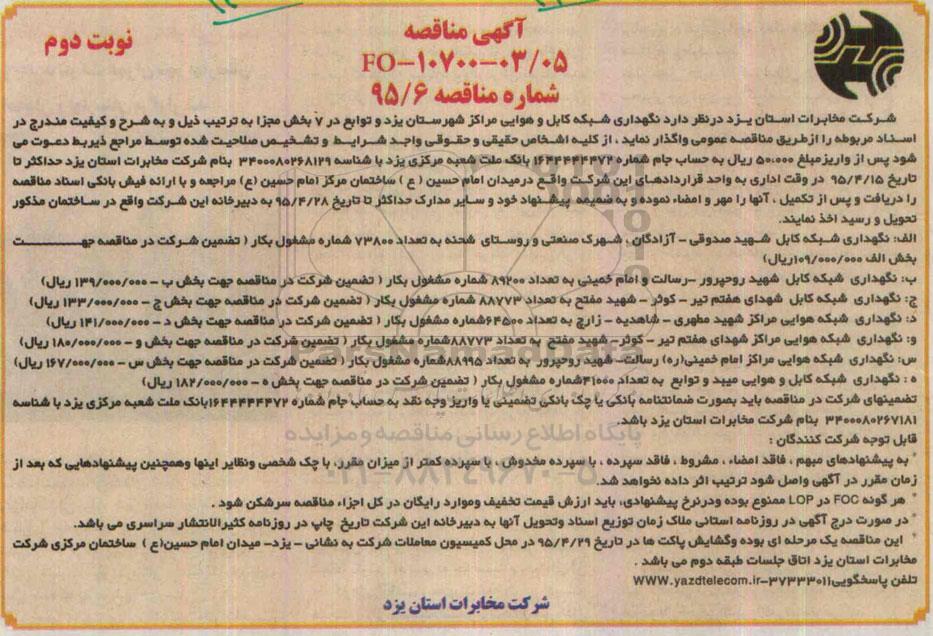 آگهی مناقصه
نوبت دوم
FO-۱۰۷۰۰-۰۳/۰۵
شماره مناقصه ۹۵/۶
شرکت مخابرات استان یزد درنظر دارد نگهداری شبکه کابل و هوایی مراکز شهرستان یزد و توابع در ۷ بخش مجزا به ترتیب ذیل و به شرح و کیفیت مندرج در
اسناد مربوطه را ازطریق مناقصه عمومی واگذار نماید ، از کلیه اشخاص حقیقی و حقوقی واجد شرایط و تشخیص صلاحیت شده توسط مراجع ذیربط دعوت می
شود پس از واریز مبلغ ۵۰،۰۰۰ ریال به حساب جام شماره ۱۶۴۴۴۴۴۴۷۲ بانک ملت شعبه مرکزی یزد با شناسه ۳۴۰۰۰۸۰۲۶۸۱۲۹ بنام شرکت مخابرات استان یزد حداکثر تا
تاریخ ۹۵/۴/۱۵ در وقت اداری به واحد قراردادهای این شرکت واقع درمیدان امام حسین ( ع ) ساختمان مرکز امام حسین (ع) مراجعه و با ارائه فیش بانکی اسناد مناقصه
را دریافت و پس از تکمیل ، آنها را مهر و امضاء نموده و به ضمیمه پیشنهاد خود و سایر مدارک حداکثر تا تاریخ ۹۵/۴/۲۸ به دبیرخانه این شرکت واقع در ساختمان مذکور
تحویل و رسید اخذ نمایند.
الف: نگهداری شبکه کابل شهید صدوقی - آزادگان ، شهرک صنعتی و روستای شحنه به تعداد ۷۳۸۰۰ شماره مشغول بکار ( تضمین شرکت در مناقصه جهت
بخش الف ۱۰۹/۰۰۰/۰۰۰ریال)
ب: نگهداری شبکه کابل شهید روحپرور -رسالت و امام خمینی به تعداد ۸۹۲۰۰ شماره مشغول بکار ( تضمین شرکت در مناقصه جهت بخش ب - ۱۳۹/۰۰۰/۰۰۰ ریال)
ج: نگهداری شبکه کابل شهدای هفتم تیر - کوثر - شهید مفتح به تعداد ۸۸۷۷۳ شماره مشغول بکار ( تضمین شرکت در مناقصه جهت بخش ج - ۱۳۳/۰۰۰/۰۰۰ ریال)
د: نگهداری شبکه هوایی مراکز شهید مطهری - شاهدیه - زارچ به تعداد ۶۴۵۰۰شماره مشغول بکار ( تضمین شرکت در مناقصه جهت بخش د - ۱۴۱/۰۰۰/۰۰۰ ریال)
و: نگهداری شبکه هوایی مراکز شهدای هفتم تیر - کوثر- شهید مفتح به تعداد ۸۸۷۷۳شماره مشغول بکار ( تضمین شرکت در مناقصه جهت بخش و - ۱۸۰/۰۰۰/۰۰۰ ریال)
س: نگهداری شبکه هوایی مراکز امام خمینی(ره) رسالت- شهید روحپرور به تعداد ۸۸۹۹۵شماره مشغول بکار ( تضمین شرکت در مناقصه جهت بخش س - ۱۶۷/۰۰۰/۰۰۰ ریال)
ه : نگهداری شبکه کابل و هوایی میبد و توابع به تعداد ۴۱۰۰۰شماره مشغول بکار ( تضمین شرکت در مناقصه جهت بخش ه - ۱۸۲/۰۰۰/۰۰۰ ریال)
تضمینهای شرکت در مناقصه باید بصورت ضمانتنامه بانکی یا چک بانکی تضمینی یا واریز وجه نقد به حساب جام شماره ۱۶۴۴۴۴۴۴۷۲بانک ملت شعبه مرکزی یزد با شناسه
۳۴۰۰۰۸۰۲۶۷۱۸۱ بنام شرکت مخابرات استان یزد باشد.
قابل توجه شرکت کنندگان :
* به پیشنهادهای مبهم ، فاقد امضاء ، مشروط ، فاقد سپرده ، با سپرده مخدوش ، با سپرده کمتر از میزان مقرر، با چک شخصی ونظایر اینها وهمچنین پیشنهادهایی که بعد از
زمان مقرر در آگهی واصل شود ترتیب اثر داده نخواهد شد.
* هر گونه FOC در LOP ممنوع بوده ودرنرخ پیشنهادی، باید ارزش قیمت تخفیف وموارد رایگان در کل اجزاء مناقصه سرشکن شود .
* در صورت درج آگهی در روزنامه استانی ملاک زمان توزیع اسناد وتحویل آنها به دبیرخانه این شرکت تاریخ چاپ در روزنامه کثیرالانتشار سراسری می باشد.
* این مناقصه یک مرحله ای بوده وگشایش پاکت ها در تاریخ ۹۵/۴/۲۹ در محل کمیسیون معاملات شرکت به نشانی - یزد- میدان امام حسین(ع ) ساختمان مرکزی شرکت
مخابرات استان یزد اتاق جلسات طبقه دوم می باشد .
تلفن پاسخگویی۳۷۳۳۳۰۱۱-WWW.yazdtelecom.ir
شرکت مخابرات استان یزد
پایگاه اطلاع رسانی مناقصه و مزایده
۰۲۱-۸۸۳۴۹۶۷۰-۵